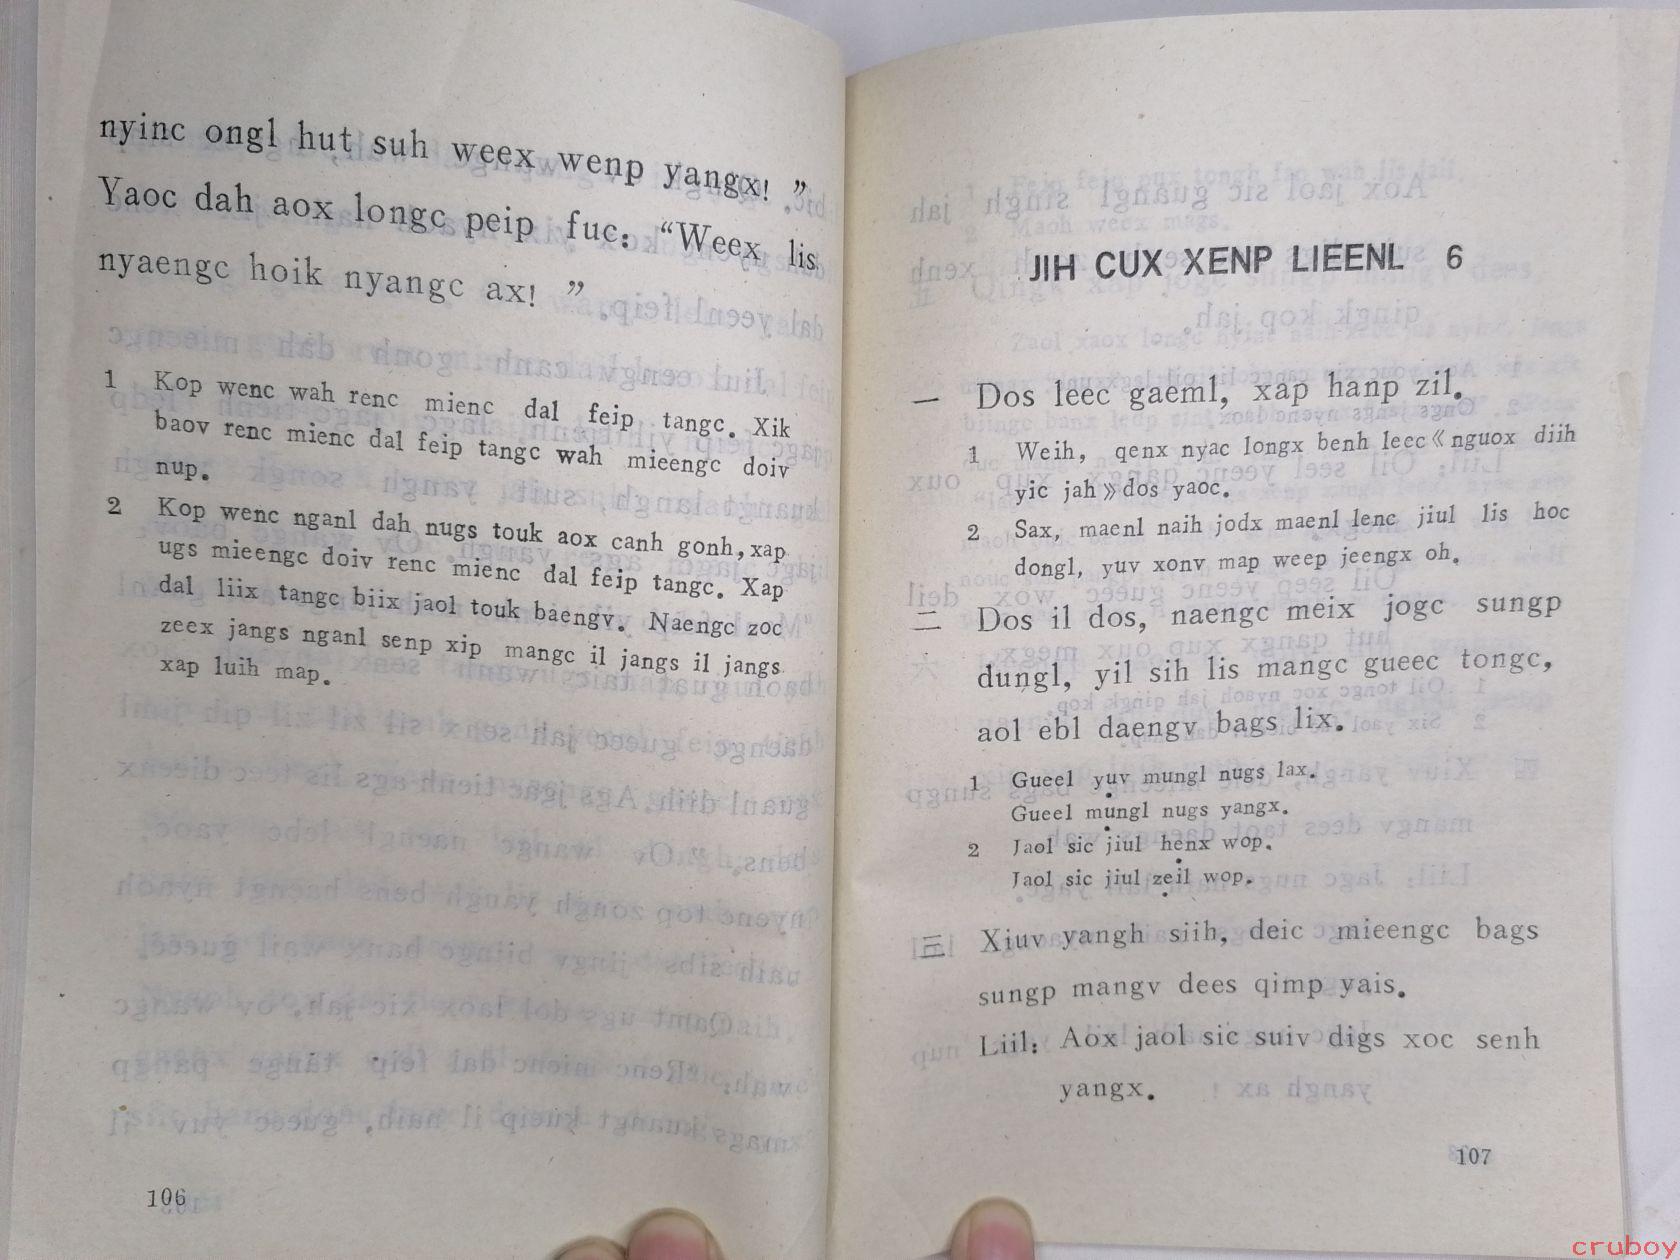 nyinc ongl hut suh weex wenp yangx! ”
Yaoc dah aox longc peip fuc: “Weex lis
nyaengc hoik nyangc ax! ”
1 Kop wenc wah renc mienc dal feip tangc. Xik
baov renc mienc dal feip tangc wah mieengc doiv
nup.
2 Kop wenc nganl dah nugs touk aox canh gonh, xap
ugs mieengc doiv renc mienc dal feip tangc. Xap
dal liix tangc biix jaol touk baengv. Naengc zoc
zeex jangs nganl senp xip mangc il jangs il jangs
xap luih map.
106
JIH CUX XENP LIEENL 6
一 Dos leec gaeml, xap hanp zil.
1 Weih, qenx nyac longx benh leec《nguox diih
yic jah》dos yaoc.
2 Sax, maenl naih jodx maenl lenc jiul lis hoc
dongl, yuv xonv map weep jeengx oh.
二 Dos il dos, naengc meix jogc sungp
dungl, yil sih lis mangc gueec tongc,
aol ebl daengv bags lix.
1 Gueel yuv mungl nugs lax.
Gueel mungl nugs yangx.
2 Jaol sic jiul henx wop.
Jaol sic jiul zeil wop.
三 Xiuv yangh siih, deic mieengc bags
sungp mangv dees qimp yais.
Liil: Aox jaol sic suiv digs xoc senh
yangx.
107
cruboy